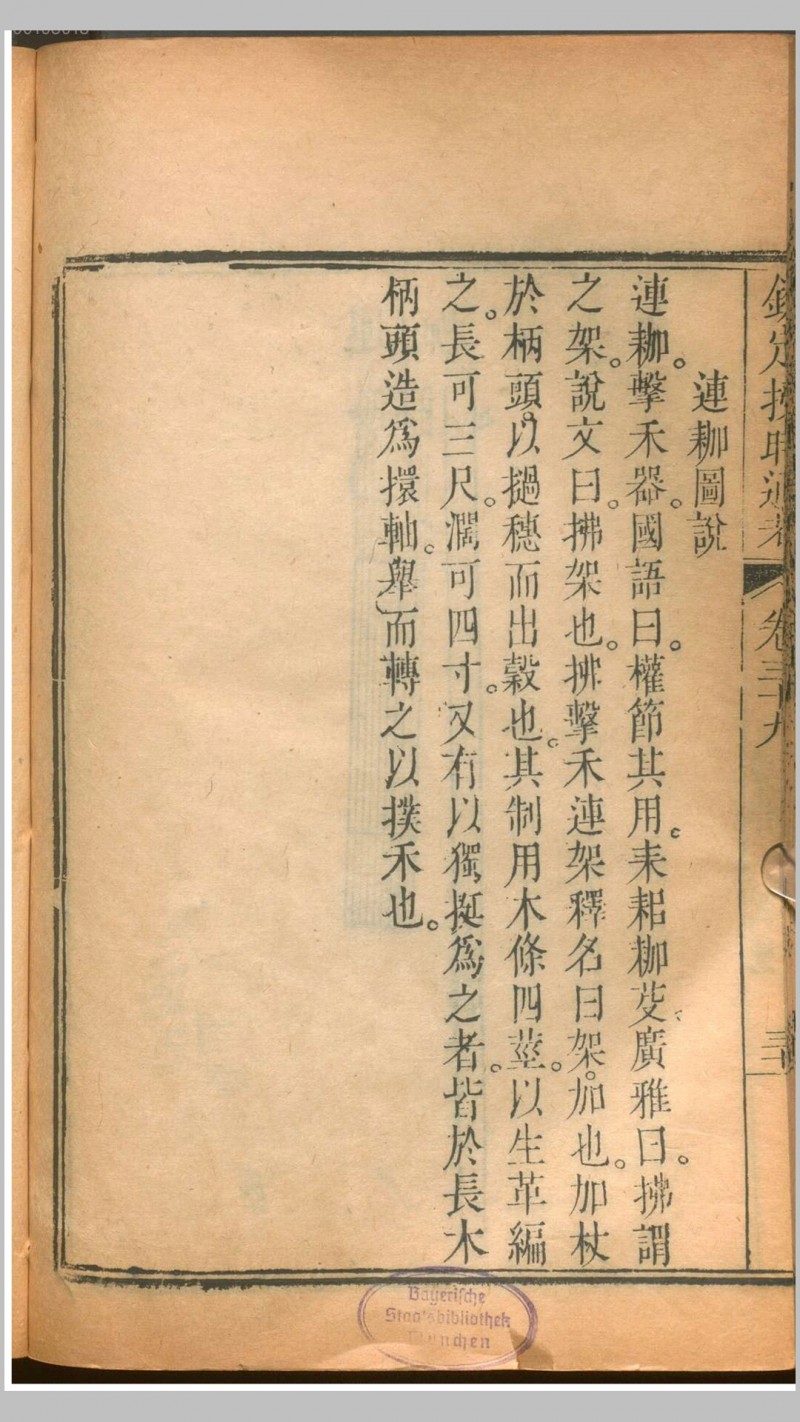 欽定授時通考 卷三十九 三
連耞圖說
連耞。擊禾器。國語曰。權節其用。耒耜耞芟。廣雅曰。拂謂
之架。說文曰。拂架也。拂擊禾連架釋名曰架。加也。加杖
於柄頭。以撾穗而出穀也。其制用木條四莖。以生革編
之。長可三尺。濶可四寸。又有以獨挺爲之者。皆於長木
柄頭造爲擐軸。舉而轉之以撲禾也。
Bayerische
Staatsbibliothek
München